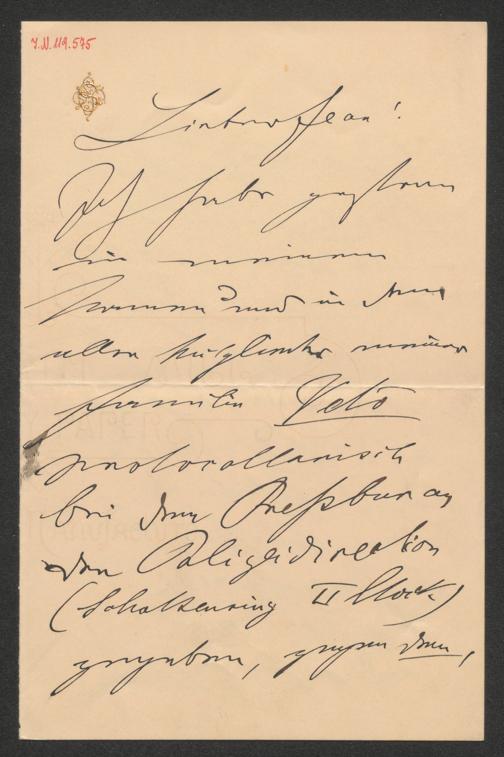 I.N. 119.575
Lieber Jean!
Ich habe gestern
in meinem
Namen und in dem
aller Mitglieder meiner
Familie Veto
protocollarisch
bei dem Preßbureau
der Polizeidirection
(Schottenring II Stock)
gegeben, gegen den,